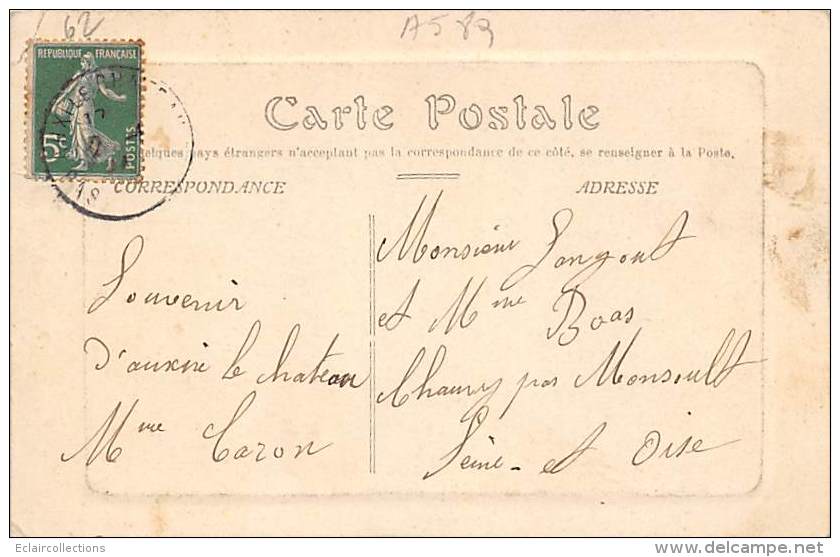 62
A589
REPUBLIQUE FRANÇAISE
POSTES
Carte Postale
pays étrangers n'acceptant pas la correspondance de ce côté, se renseigner à la Poste.
CORRESPONDANCE
ADRESSE
Souvenir
d'auxire le chateau
Mme Caron
Monsieur
et Mme Boas
par Monsoult
Seine-et Oise
Eclaircollections
delcampe.net